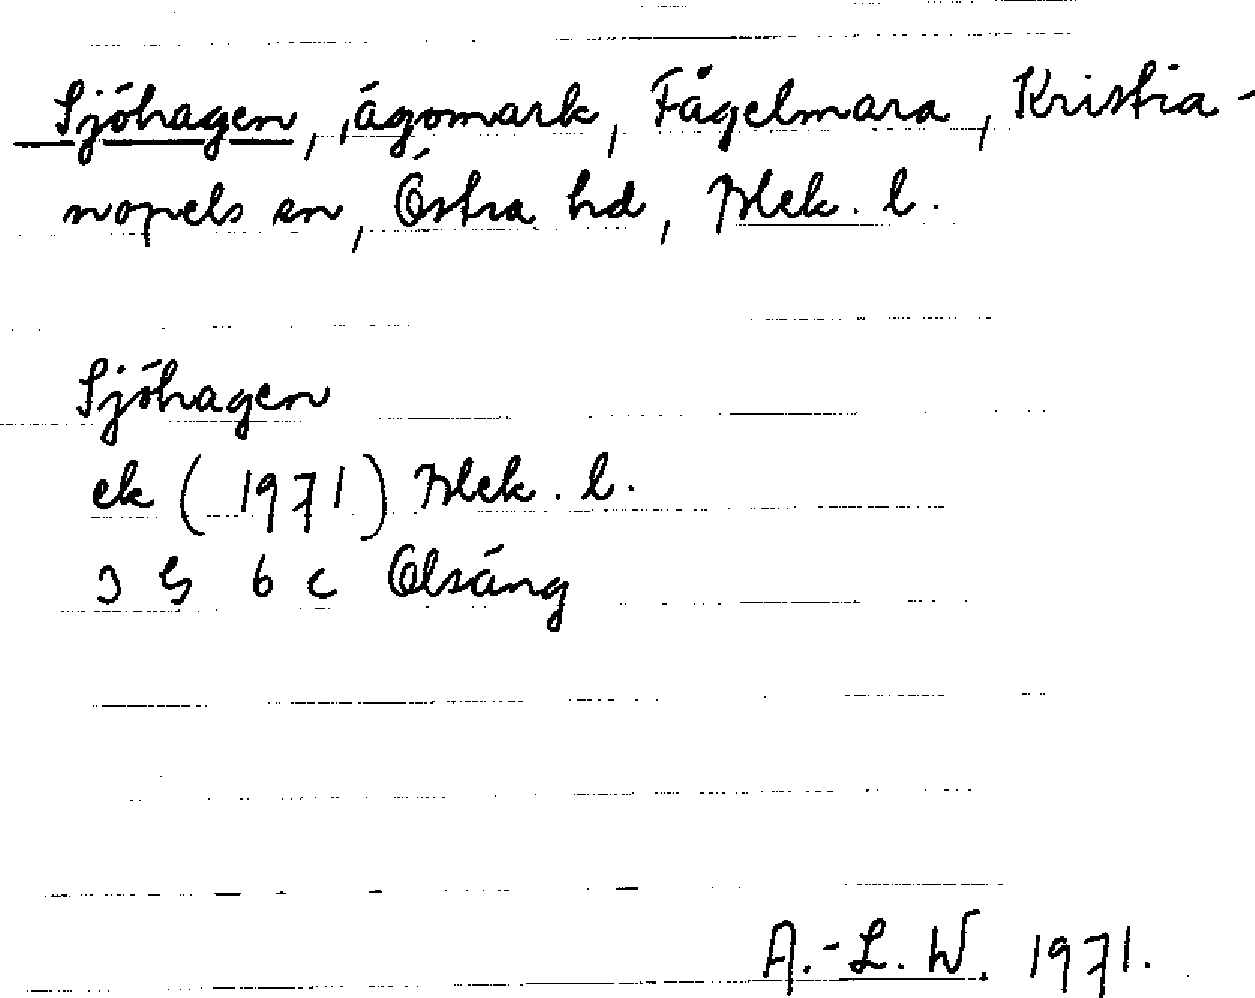 Sjöhagen, ägomark, Fågelmara, Kristia-
nopels sn, Östra hd, Blek. l.
Sjöhagen
ek (1971) Blek. l.
3 G 6 c Olsäng
A.-L. W. 1971.